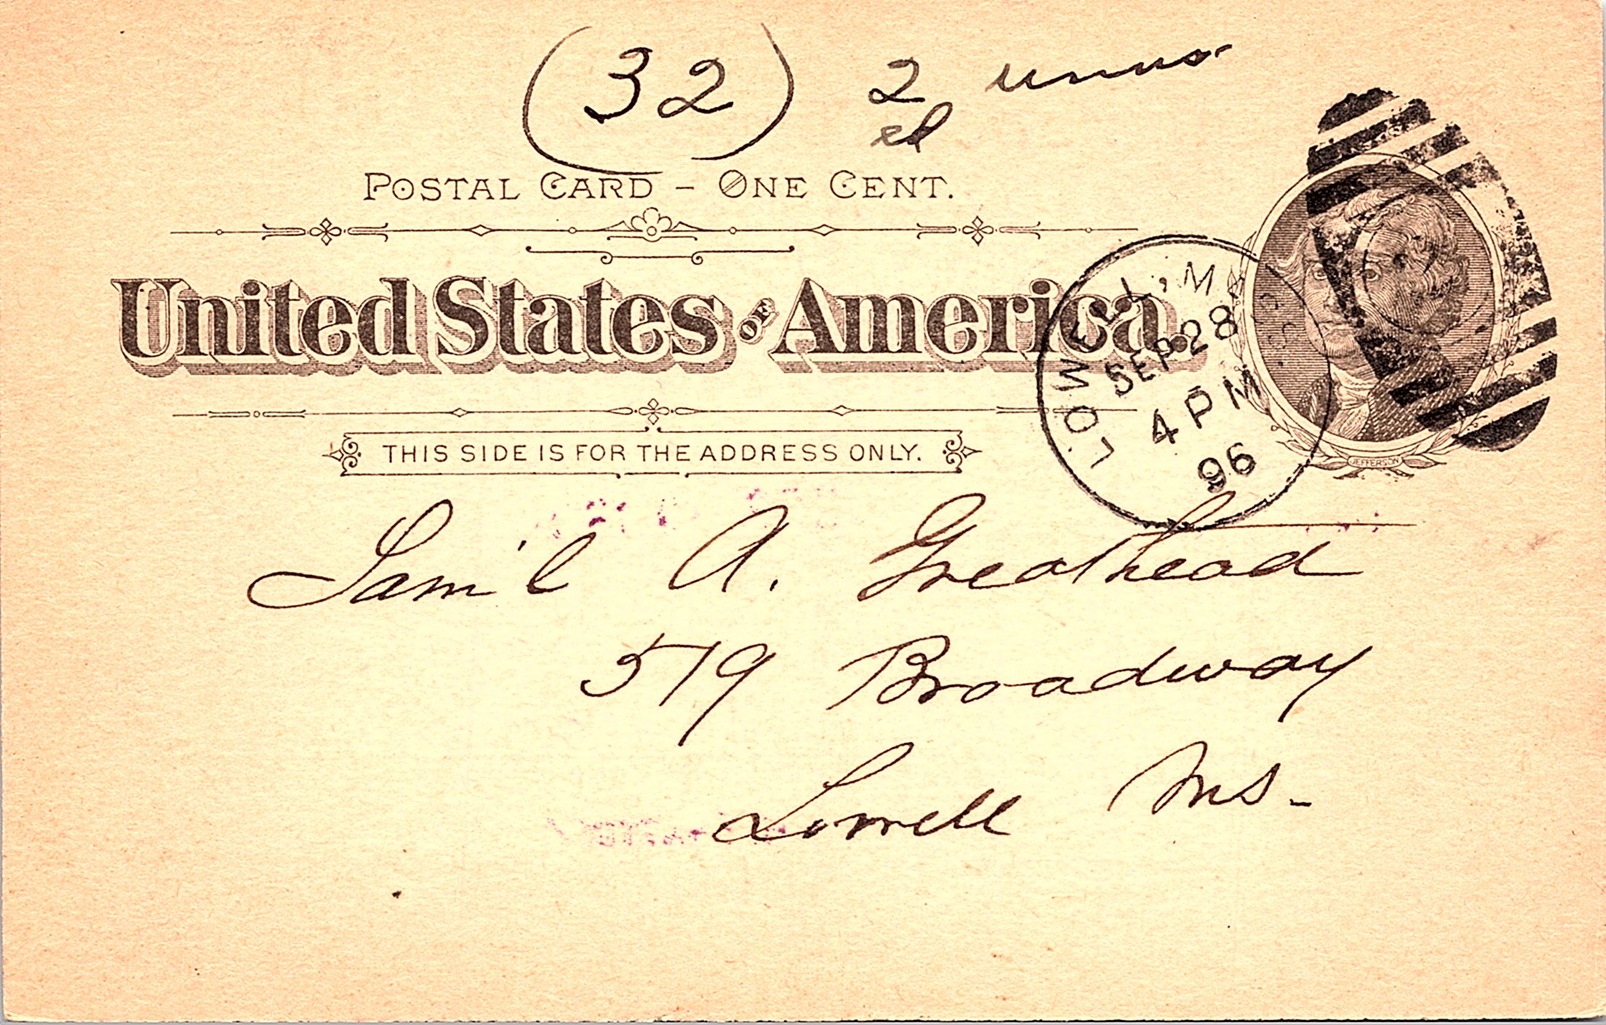 (32) 2
POSTAL CARD – ONE CENT.
United States OF America.
THIS SIDE IS FOR THE ADDRESS ONLY.
LOWELL, M
SEP 28
4 PM
96
JEFFERSON
Sam'l A. Greathead
519 Broadway
Lowell Ms-